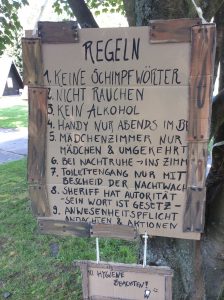 REGELN
1. KEINE SCHIMPFWÖRTER
2. NICHT RAUCHEN
3. KEIN ALKOHOL
4. HANDY NUR ABENDS IM
5. MÄDCHENZIMMER NUR
MÄDCHEN & UMGEKEHRT
6. BEI NACHTRUHE → INS ZIMM
7. TOILETTENGANG NUR MIT
BESCHEID DER NACHTWA
8. SHERIFF HAT AUTORITÄT
- SEIN WORT IST GESETZ -
9. ANWESENHEITSPFLICHT
ANDACHTEN & AKTIONEN
10. HYGIENE
BEACHTEN!